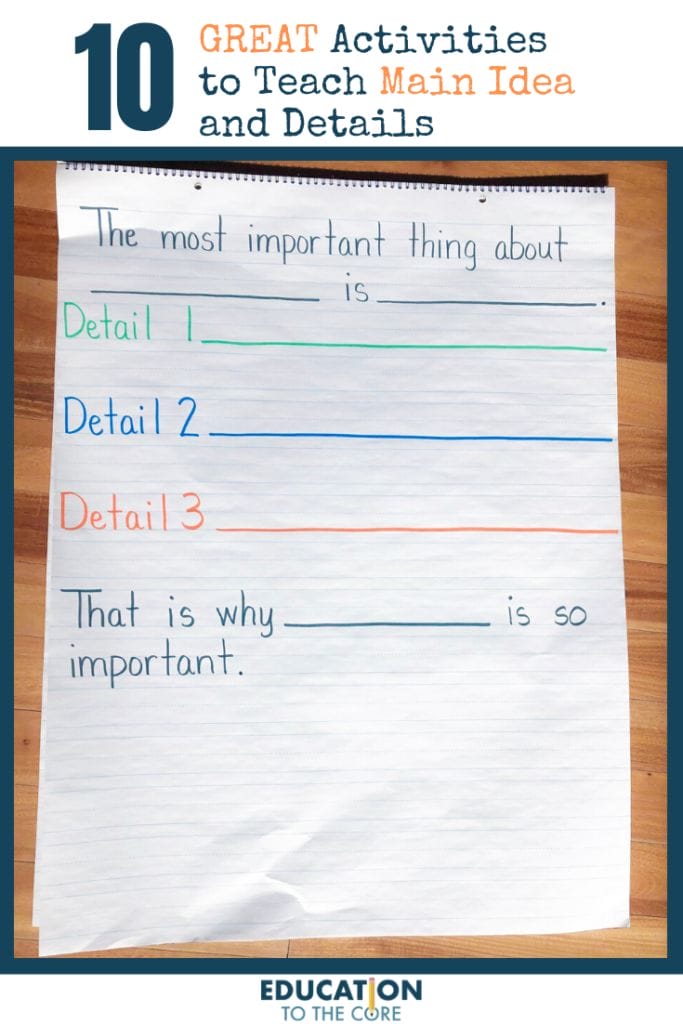 10 GREAT Activities
to Teach Main Idea
and Details
The most important thing about
__________ is __________.
Detail 1__________
Detail 2__________
Detail 3__________
That is why __________ is so
important.
EDUCATION
TO THE CORE